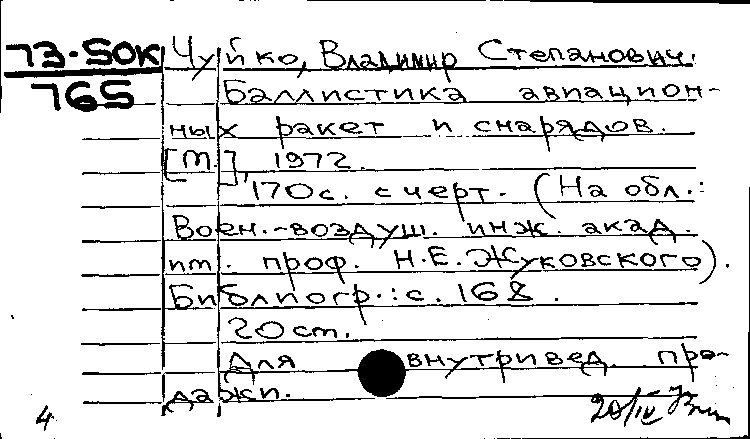 73-50К Чуйко, Владимир Степанович.
765 Баллистика авиацион-
ных ракет и снарядов.
[М.], 1972.
170с. с черт. (На обл.:
Воен.-воздуш. инж. акад.
им. проф. Н.Е.Жуковского).
Библиогр.: с. 168.
20 см.
Для внутривед. про-
дажи.
4 20/IV